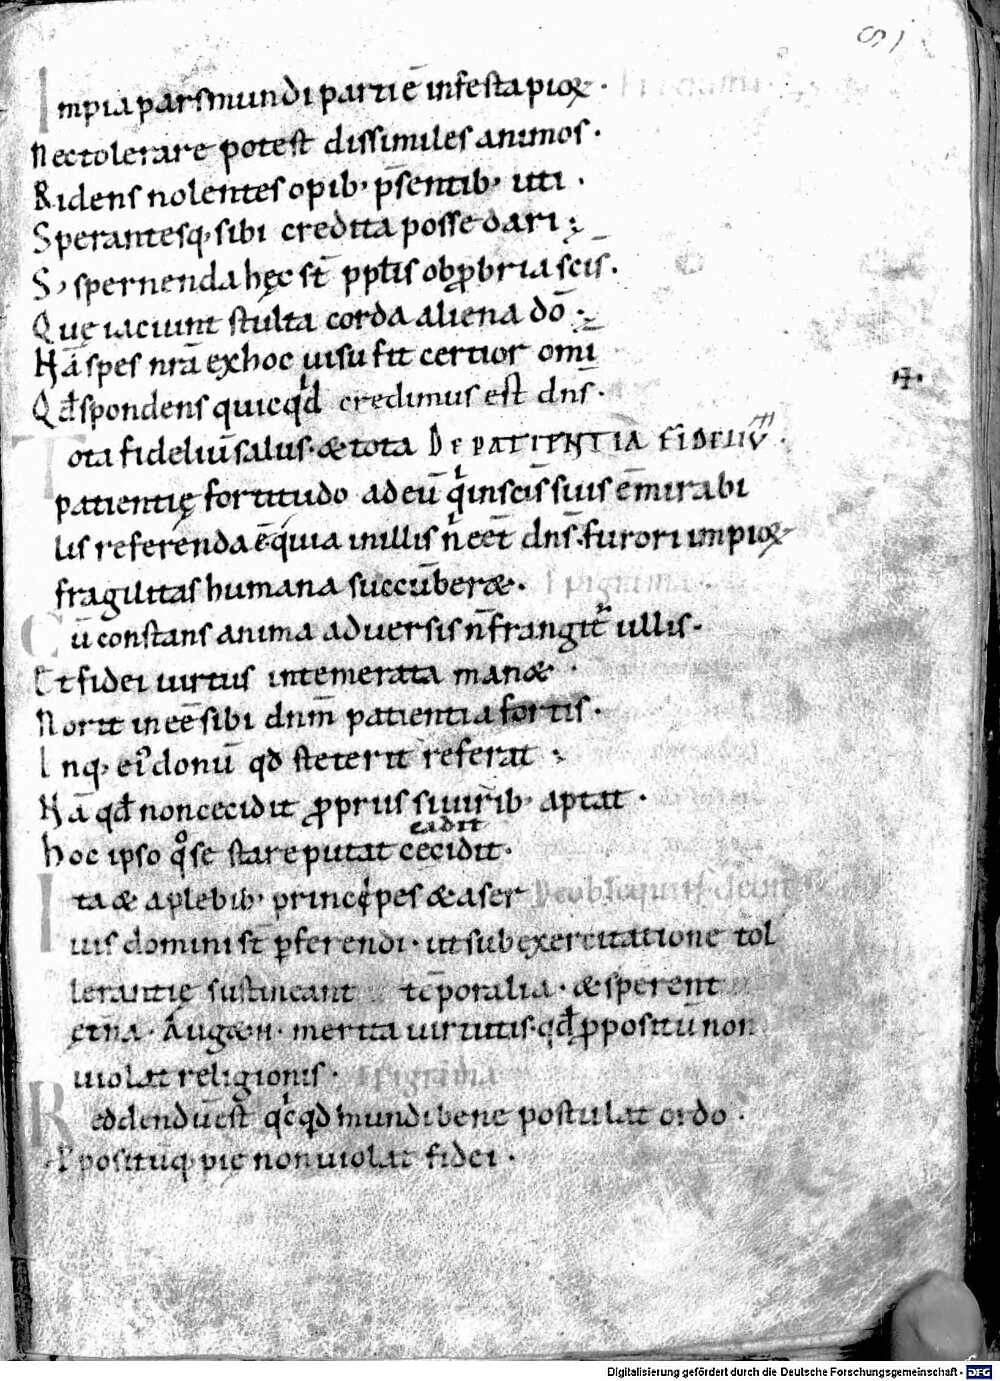 Impia pars mundi parti ē infesta pioꝝ·
Nec tolerare potest dissimiles animos·
Ridens nolentes opib; p̄sentib; uti·
Sperantesq; sibi credita posse dari;
S; spernenda hęc st̄ ꝓpt̄is obꝓbria sc̄is·
Quę iaciunt stulta corda aliena dō·
Nā spes nr̄a ex hoc uisu fit certior om̄i
Qđ spondens quicqͥd credimus est dn̄s·
Tota fideliū salus· & tota DE PATIENTIA FIDELIV̄·
patientię fortitudo ad eū qͥ in sc̄is suis ē mirabi
lis referenda ē· quia in illis nͥ eēt dn̄s· furori impioꝝ
fragilitas humana succūber&·
Cū constans anima aduersis n̄ frangit᷑ ullis·
Et fidei uirtus intemerata man&·
Norit inee͞ sibi dn̄m patientia fortis·
Inq; ei᷒ donū qđ steterit referat;
Nā qđ non cecidit ꝓpriis si uirib; aptat·
cadit
hoc ipso qͦ se stare putat cecidit·
Ita & a plebib; principes & a ser
uis domini st̄ ꝑferendi· ut sub exercitatione tol
lerantię sustineant tēporalia· & sperent
ęt̄na· Auge&n· merita uirtutis· qđ ꝓpositū non
uiolat religionis·
Reddendū est qͥcqͥd mundi bene postulat ordo·
Ꝓpositūq; pię non uiolat fidei·
Digitalisierung gefördert durch die Deutsche Forschungsgemeinschaft - DFG